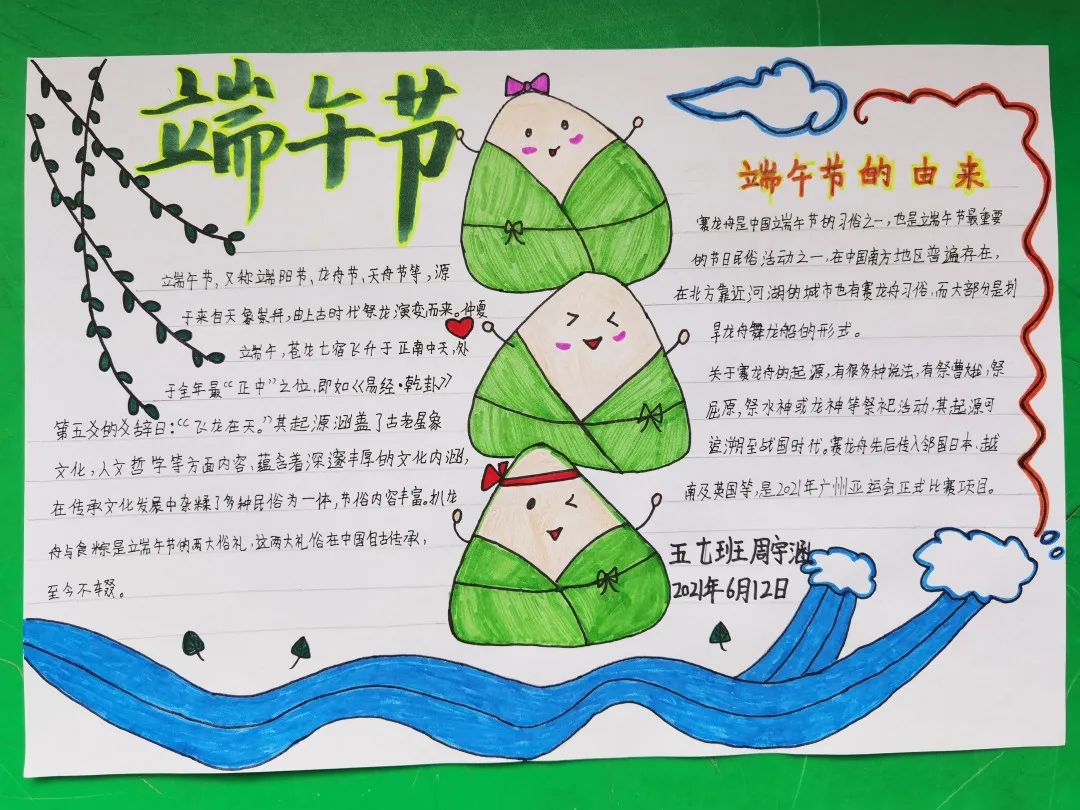 端午节
端午节,又称端阳节、龙舟节、天舟节等,源
于来自天象崇拜,由上古时代祭龙演变而来。仲夏
端午,苍龙七宿飞升于正南中天,处
于全年最“正中”之位,即如《易经·乾卦》
第五爻的爻辞曰:“飞龙在天。”其起源涵盖了古老星象
文化,人文哲学等方面内容,蕴含着深邃丰厚的文化内涵,
在传承文化发展中杂糅了多种民俗为一体,节俗内容丰富。扒龙
舟与食粽是端午节的两大俗礼,这两大礼俗在中国自古传承,
至今不辍。
端午节的由来
赛龙舟是中国端午节的习俗之一,也是端午节最重要
的节日民俗活动之一,在中国南方地区普遍存在,
在北方靠近河湖的城市也有赛龙舟习俗,而大部分是划
旱龙舟舞龙船的形式。
关于赛龙舟的起源,有很多种说法,有祭曹娥,祭
屈原,祭水神或龙神等祭祀活动,其起源可
追溯至战国时代。赛龙舟先后传入邻国日本、越
南及英国等,是2021年广州亚运会正式比赛项目。
五七班 周宇涵
2021年6月12日